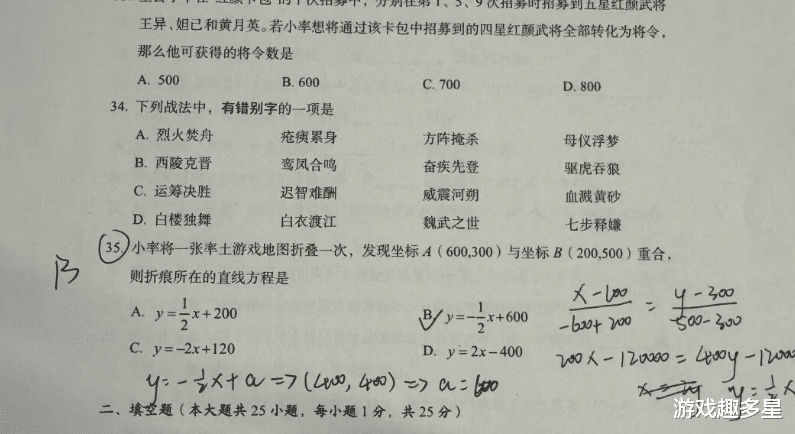 王异、妲己和黄月英。若小率想将通过该卡包中招募到的四星红颜武将全部转化为将令,
那么他可获得的将令数是
A. 500 B. 600 C. 700 D. 800
34. 下列战法中,有错别字的一项是
A. 烈火焚舟 疮痍累身 方阵掩杀 母仪浮梦
B. 西陵克晋 鸾凤合鸣 奋疾先登 驱虎吞狼
C. 运筹决胜 迟智难酬 威震河朔 血溅黄砂
D. 白楼独舞 白衣渡江 魏武之世 七步释嫌
35. 小率将一张率土游戏地图折叠一次,发现坐标 A(600,300)与坐标 B(200,500)重合,
B
则折痕所在的直线方程是
A. y=1/2x+200 B. y=-1/2x+600
C. y=-2x+120 D. y=2x-400
x-600/-600+200 = y-300/500-300
200x-120000=400y-12000
y=-1/2x+a=>(400,400)=>a=600
y=1/2x
二、填空题(本大题共 25 小题,每小题 1 分,共 25 分)
游戏趣多星